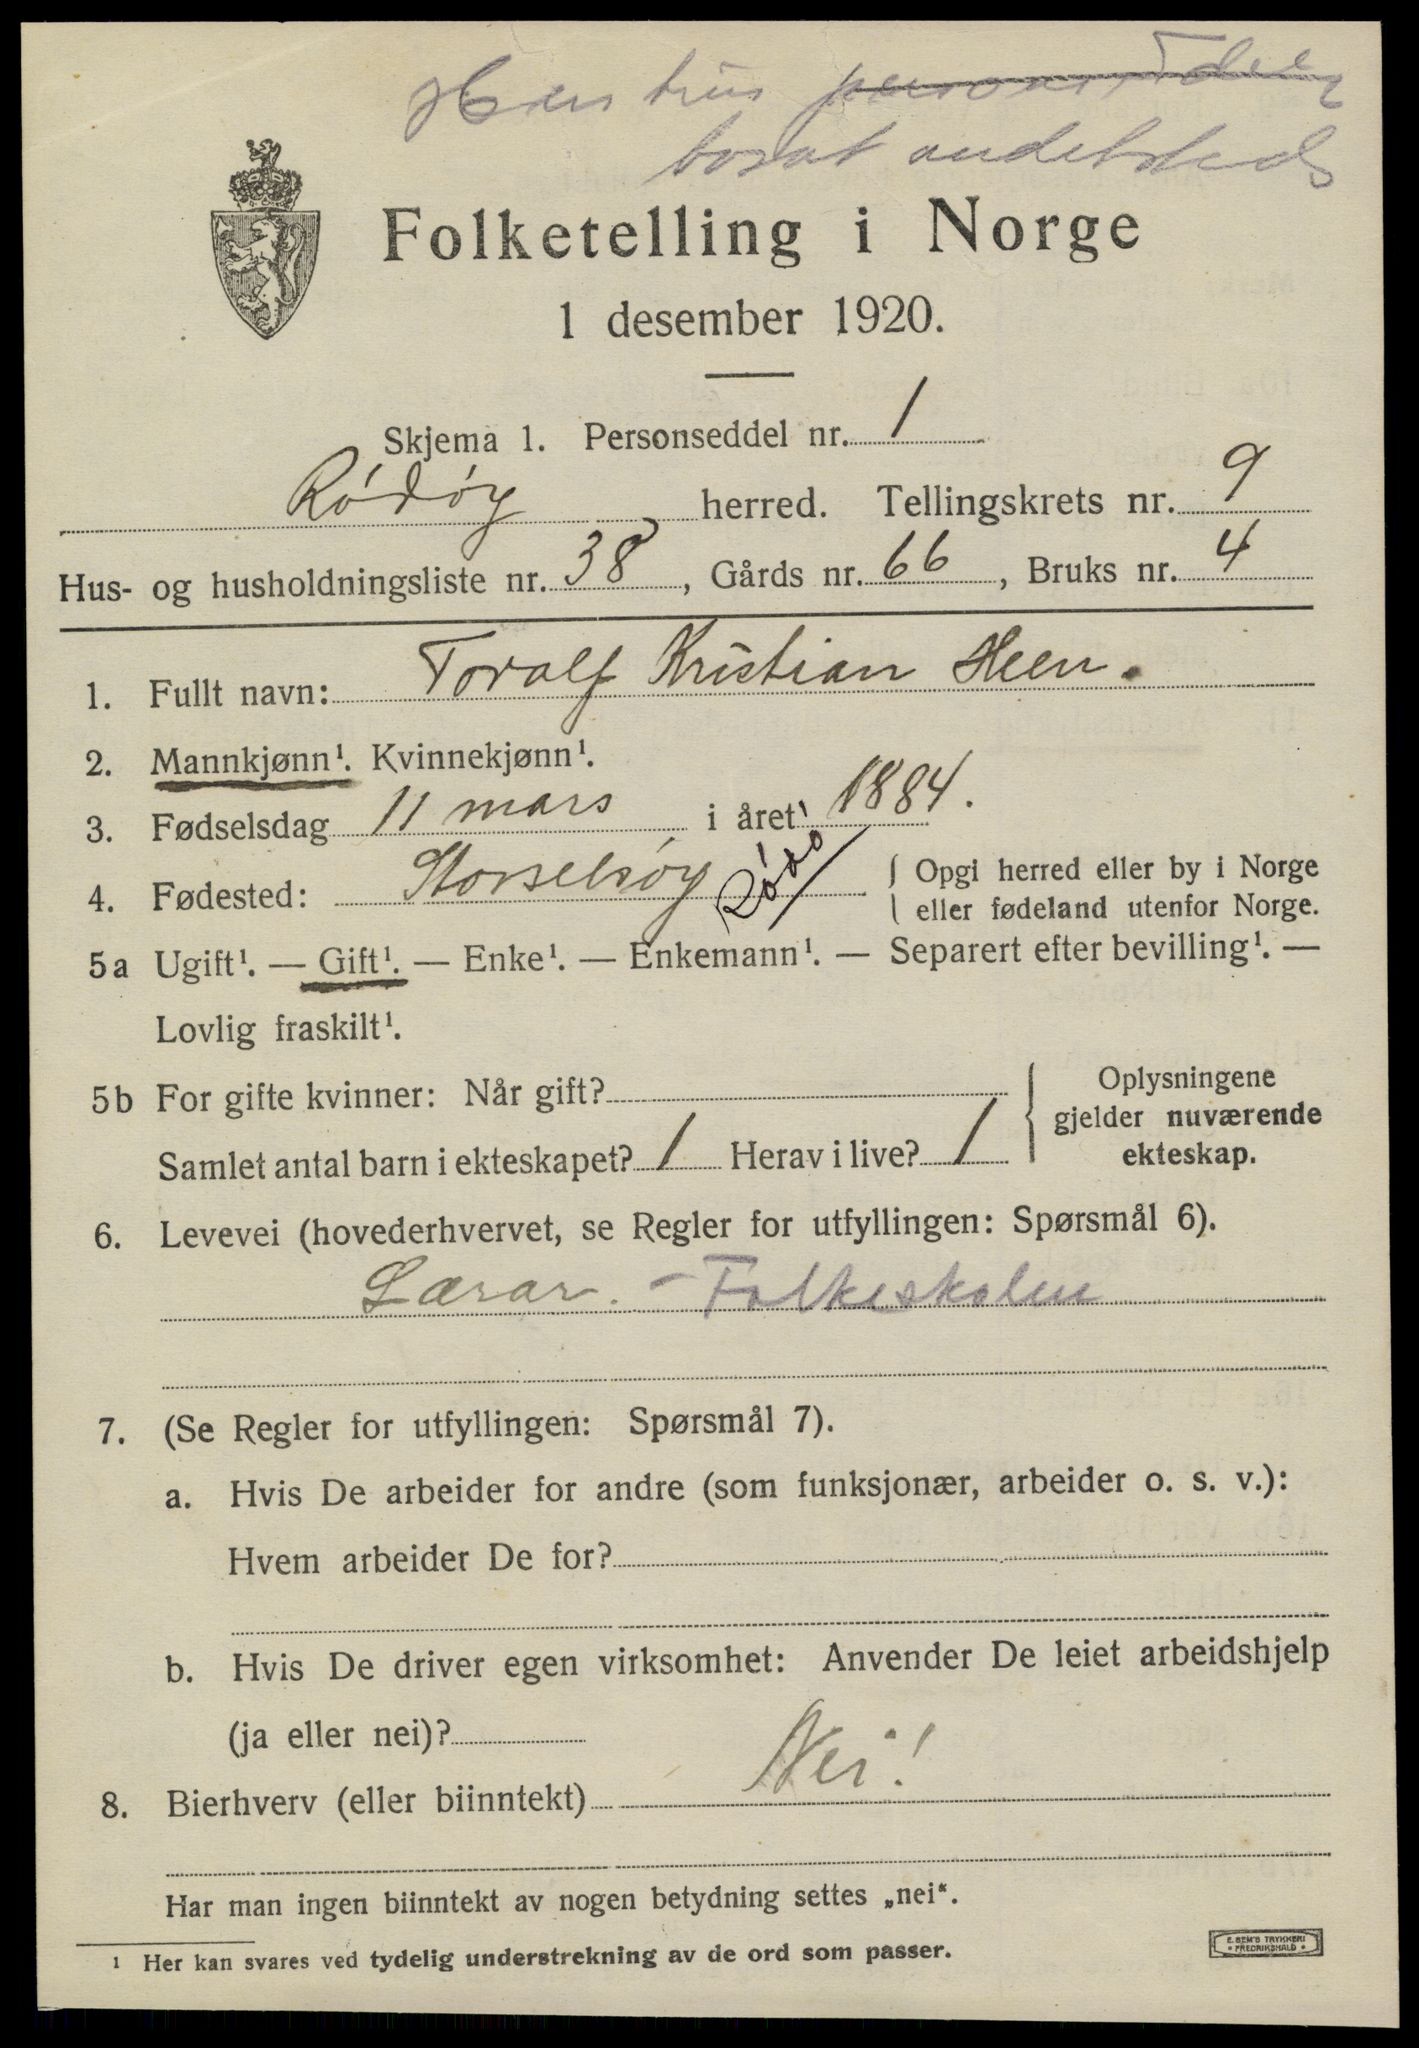 Hans hus personsedler
bosat andetsteds
Folketelling i Norge
1 desember 1920.
Skjema 1. Personseddel nr. 1
Ródóy herred. Tellingskrets nr. 9
Hus- og husholdningsliste nr. 38, Gårds nr. 66, Bruks nr. 4
1. Fullt navn: Toralf Kristian Heen.
2. Mannkjønn¹. Kvinnekjønn¹.
3. Fødselsdag 11 mars i året 1884.
4. Fødested: Storselsóy Rödö { Opgi herred eller by i Norge
eller fødeland utenfor Norge.
5a Ugift¹. — Gift¹. — Enke¹. — Enkemann¹. — Separert efter bevilling¹. —
Lovlig fraskilt¹.
5b For gifte kvinner: Når gift?
Samlet antal barn i ekteskapet? 1 Herav i live? 1
Oplysningene
gjelder nuværende
ekteskap.
6. Levevei (hovederhvervet, se Regler for utfyllingen: Spørsmål 6).
Lærar. - Folkeskolen
7. (Se Regler for utfyllingen: Spørsmål 7).
a. Hvis De arbeider for andre (som funksjonær, arbeider o. s. v.):
Hvem arbeider De for?
b. Hvis De driver egen virksomhet: Anvender De leiet arbeidshjelp
(ja eller nei)?
8. Bierhverv (eller biinntekt) Nei!
Har man ingen biinntekt av nogen betydning settes „nei“.
¹ Her kan svares ved tydelig understrekning av de ord som passer.
E. SEM'S TRYKKERI
FREDRIKSHALD